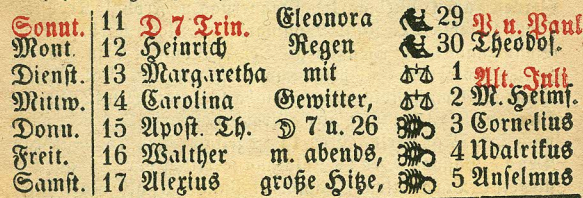 Sonnt. 11 D 7 Trin. Eleonora 29 P. u. Paul
Mont. 12 Heinrich Regen 30 Theodos.
Dienst. 13 Margaretha mit 1 Alt. Juli.
Mittw. 14 Carolina Gewitter, 2 M. Heims.
Donn. 15 Apost. Th. ☽ 7 u. 26 3 Cornelius
Freit. 16 Walther m. abends, 4 Udalrikus
Samst. 17 Alexius große Hitze, 5 Anselmus